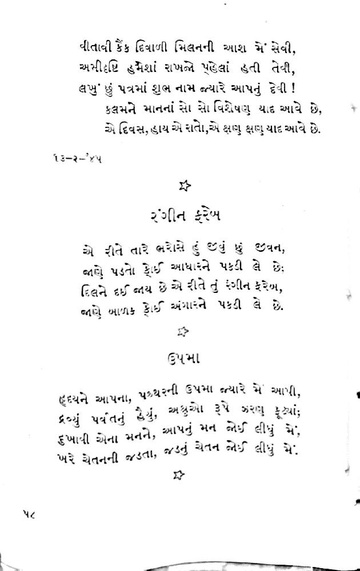 વીતાવી કૈંક દિવાળી મિલનની આશ મેં સેવી,
અમીદૃષ્ટિ હમેશાં રાખજો પ્હેલાં હતી તેવી,
લખું છું પત્રમાં શુભ નામ જ્યારે આપનું દેવી !
કલમને માનનાં સો સો વિશેષણ યાદ આવે છે,
એ દિવસ, હાય એ રાતો, એ ક્ષણ ક્ષણ યાદ આવે છે.
૧૩-૨-'૪૫
રંગીન ફરેબ
એ રીતે તારે ભરોસે હું જીવું છું જીવન,
જાણે પડતો કોઈ આધારને પકડી લે છે;
દિલને દઈ જાય છે એ રીતે તું રંગીન ફરેબ,
જાણે બાળક કોઈ અંગારને પકડી લે છે.
ઉપમા
હૃદયને આપના, પથ્થરની ઉપમા જ્યારે મેં આપી,
દ્રવ્યું પર્વતનું હૈયું, અશ્રુઓ રૂપે ઝરણ ફૂટ્યાં;
દુખાવી એના મનને, આપનું મન જોઈ લીધું મેં,
ખરે ચેતનની જડતા, જડનું ચેતન જોઈ લીધું મેં.
૫૮